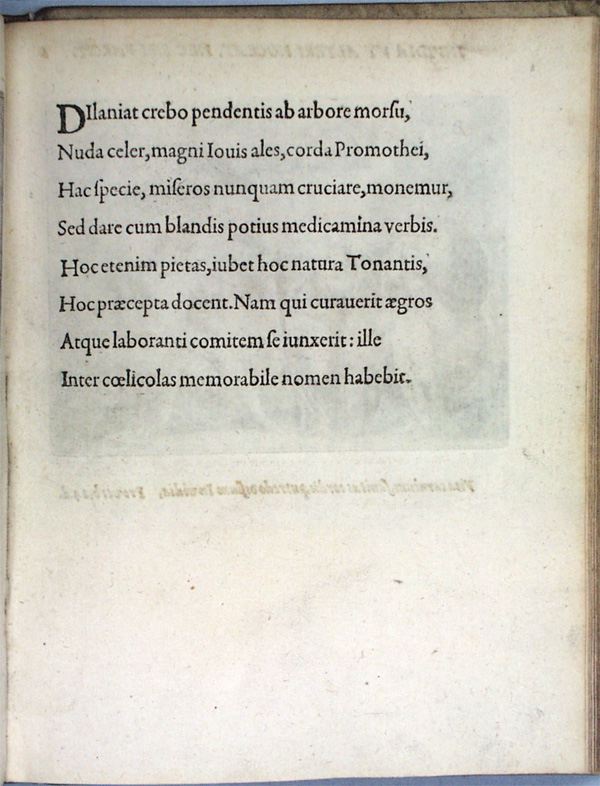 DIlaniat crebo pendentis ab arbore morſu,
Nuda celer,magni Iouis ales,corda Promothei,
Hac ſpecie, miſeros nunquam cruciare,monemur,
Sed dare cum blandis potius medicamina verbis.
Hoc etenim pietas,iubet hoc natura Tonantis,
Hoc præcepta docent.Nam qui curauerit ægros
Atque laboranti comitem ſe iunxerit: ille
Inter cœlicolas memorabile nomen habebit.